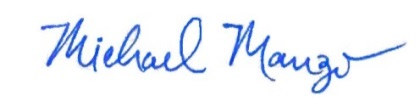 Michael Mango